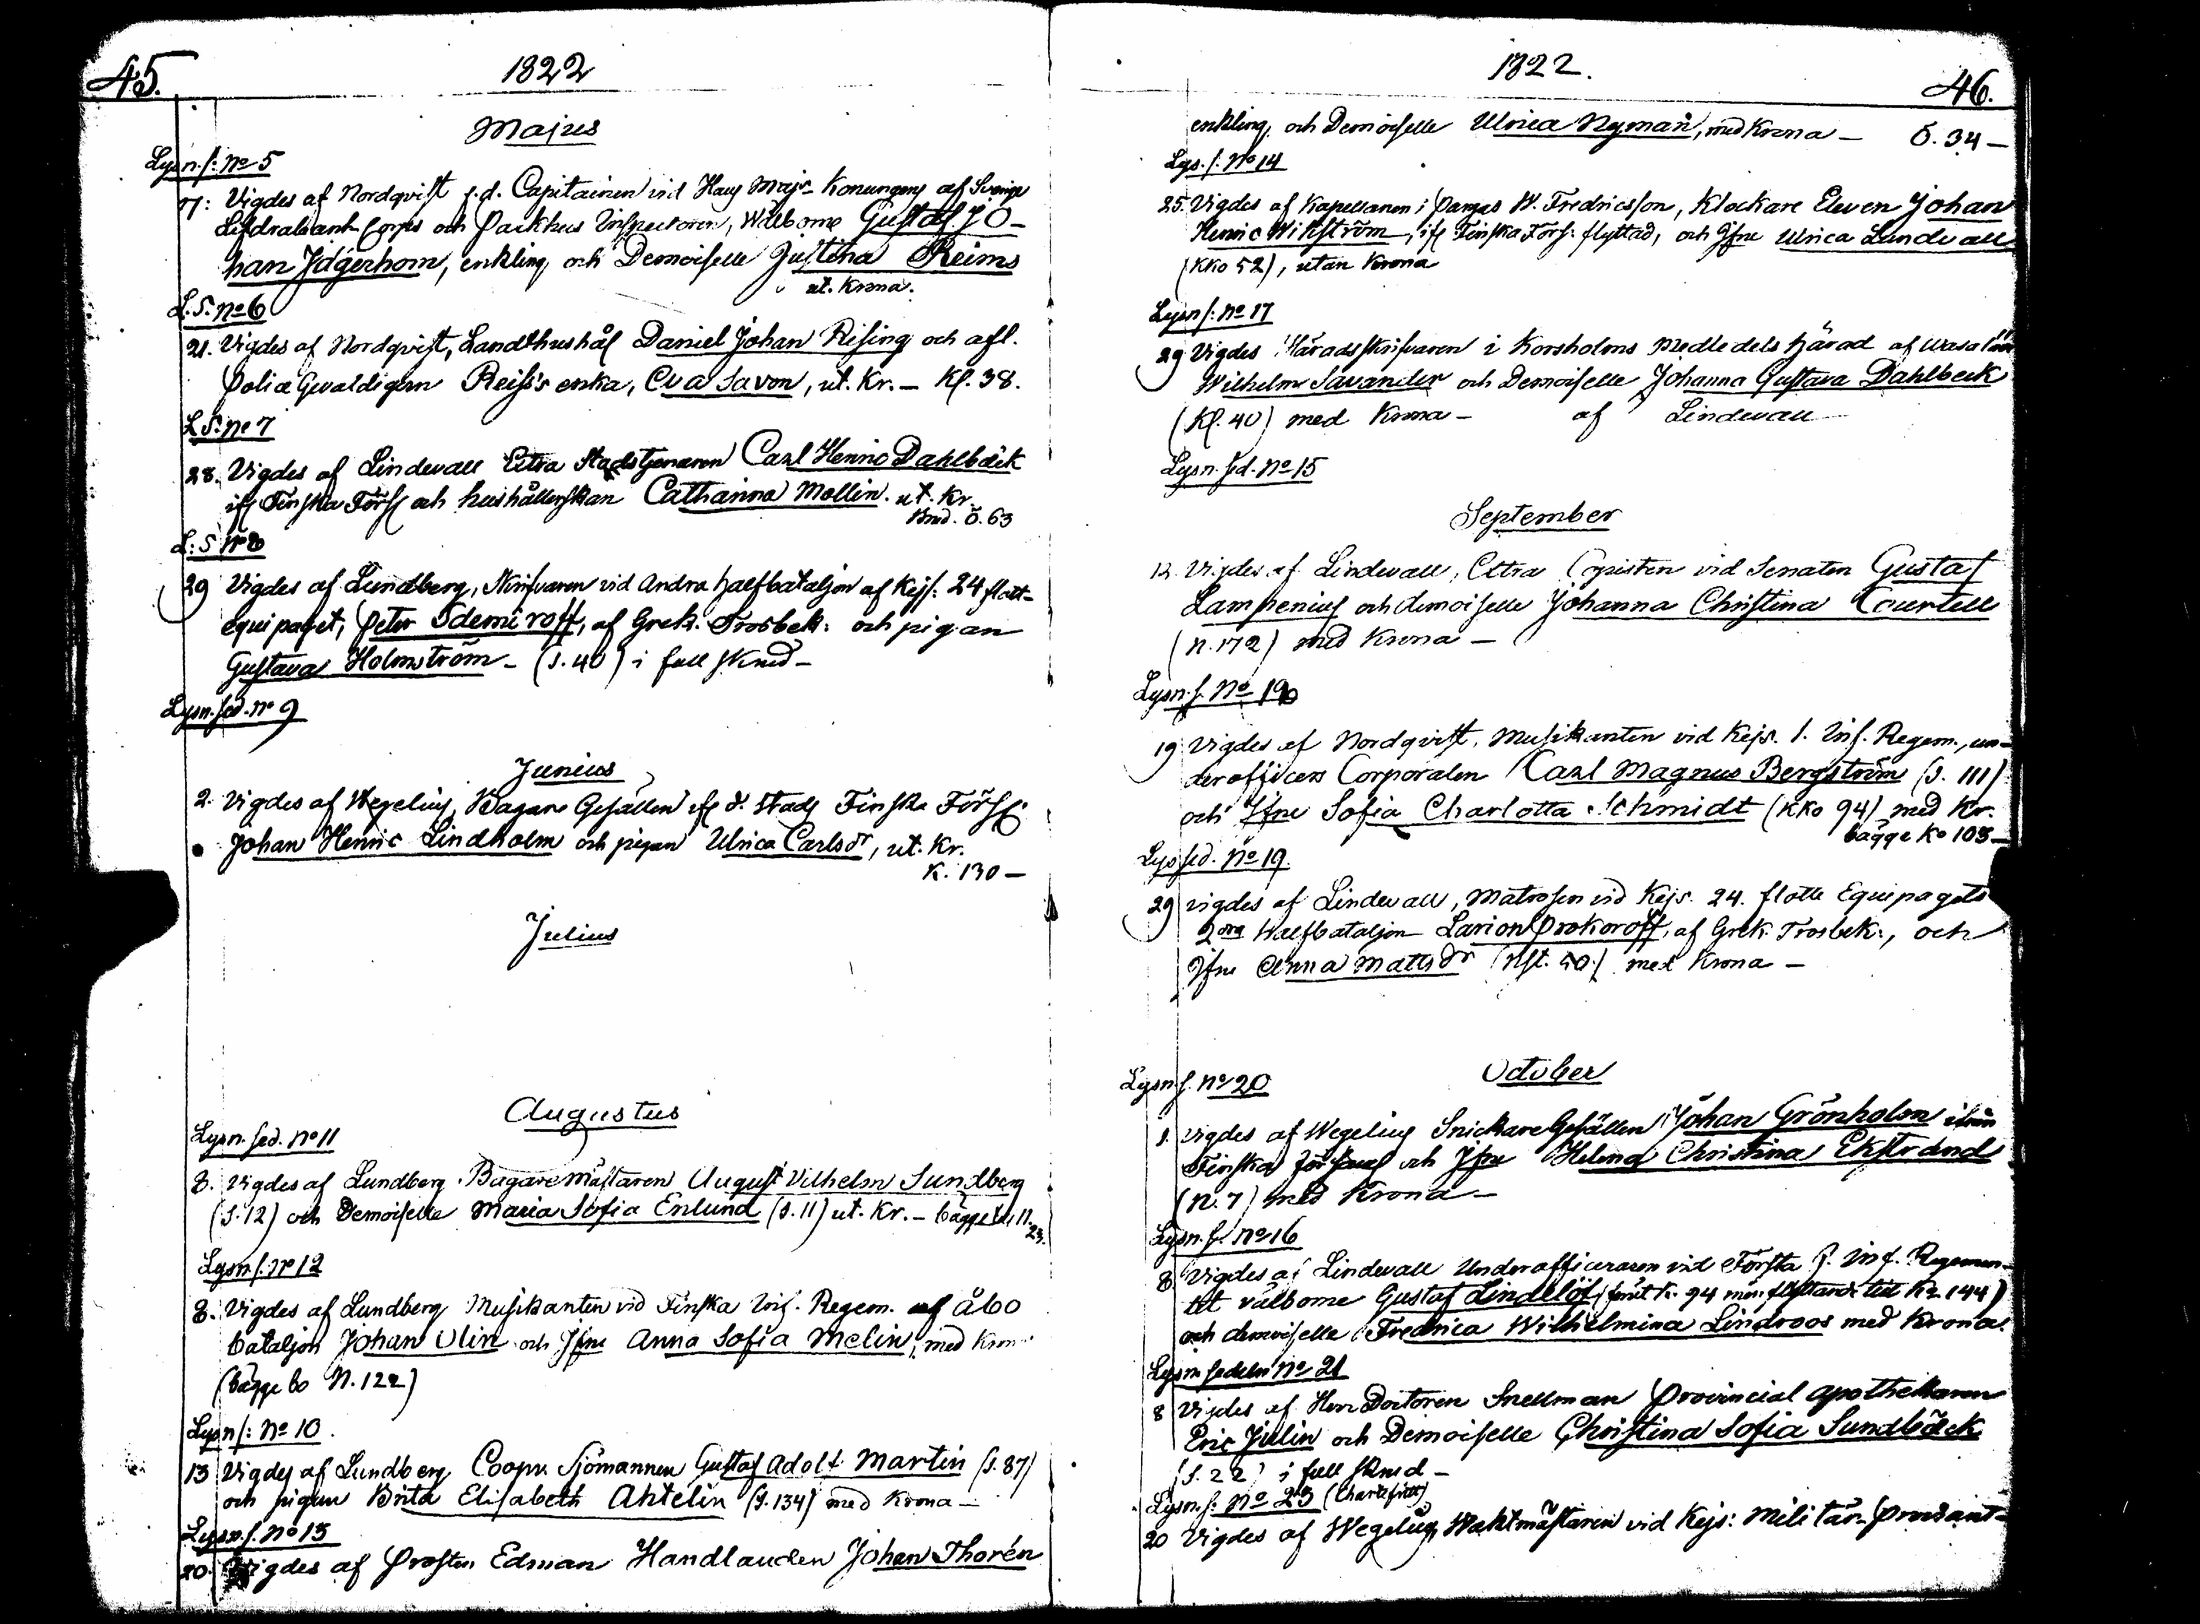 45.
1822
Majus
Lysn.s: No 5
17: Vigdes af Nordqvist f.d. Capitainen vid Hans Majs Konungens af Sverige
Lifdrabant Corps och Packhus Inspectoren, Wälborne Gustaf Jo-
han Jägerhorn, enkling, och Demoiselle Justina Reims
ut. Krona.
L.S. No 6
21. Vigdes af Nordqvist, Landthushål Daniel Johan Rising och afl.
Police Gevaldigern Reiss's enka, Eva Savon, ut. Kr. – Kl. 38.
L S: No 7
28. Vigdes af Lindevall Extra Stadstjenaren Carl Henric Dahlbäck
ifr Finska Förs och hushållerskan Catharina Mollin. ut. Kr.
Brud. Ö. 63
L: S No 8
29 Vigdes af Lundberg, Skrifvaren vid Andra halfbataljon af Kejs: 24 flott-
equipaget, Peter Sdemiroff, af Grek. Trosbek: och pigan
Gustava Holmström – (S. 40) i full skrud –
Lysn. sed. No 9
Junius
2. Vigdes af Wegelius, Bagare Gesällen ifr d. Stads Finska Förs
Johan Henric Lindholm och pigan Ulrica Carlsdr, ut. Kr.
K. 130 –
Julius
Augustus
Lysn. sed. No 11
8. Vigdes af Lundberg Bagaremästaren August Vilhelm Sundberg
(S. 12) och Demoiselle Maria Sofia Enlund (S. 11) ut. Kr. – bägge till N.
23.
Lysn s. No 12
8. Vigdes af Lundberg Musikanten vid Finska Inf. Regem. af Åbo
bataljon Johan Olin och Jfru Anna Sofia Melin, med Kron
(bägge bo N. 122)
Lysn s: No 10.
13 Vigdes af Lundberg Coopv. Sjömannen Gustaf Adolf Martin (S. 87)
och pigan Brita Elisabeth Ahtelin (S. 134) med Krona –
Lysn. s. No 13
20. Vigdes af Prosten Edman Handlanden Johan Thorén
1822.
46.
enkling, och Demoiselle Ulrica Nyman, med Krona – Ö. 34 –
Lys. s. No 14
25. Vigdes af Kapellanen i Pargas W. Fredricsson, Klockare Eleven Johan
Henric Wikström, ifr Finska Förs: flyttad, och Jfru Ulrica Lundevall
(KKo 52), utan Krona
Lysn s: No 17
29 Vigdes Häradsskrifvaren i Korsholms Medledels Härad af Wasa län
Wilhelm Savander och Demoiselle Johanna Gustava Dahlbeck
(Kl. 40) med Krona – af Lindevall
Lysn. sed. No 15
September
12. Vigdes af Lindevall, Extra Copisten vid Senaten Gustaf
Lampenius och demoiselle Johanna Christina Courtell
(N. 172) med Krona –
Lysn. s. No
19 Vigdes af Nordqvist, Musikanten vid Kejs. 1. Inf. Regem., un-
derofficers Corporalen Carl Magnus Bergström (S. 111)
och Jfru Sofia Charlotta Schmidt (KKo 94) med Kr.
bägge Ko 103 –
Lys sed. No 19.
29 vigdes af Lindevall, Matrosen vid Kejs. 24. flotte Equipagets
2dra Halfbataljon Larion Prokoroff, af Grek. Trosbek:, och
Jfru Anna Mattsdr (Nst. 50) med Krona –
October
Lysn s. No 20
1. vigdes af Wegelius Snickare Gesällen Johan Grönholm ifrån
Finska Förs och Jfru Helena Christina Ekstrand
(N. 7) med Krona –
Lysn. s. No 16
8 Vigdes af Lindevall Underofficeraren vid Första F. Inf. Regemen-
tet välborne Gustaf Lindelöf K. 94 144)
och demoiselle Fredrica Wilhelmina Lindroos med Krona.
Lysn sedeln No 21
8 Vigdes af Herr Doctoren Snellman Provincial Apothekaren
Eric Julin och Demoiselle Christina Sofia Sundbäck
(S. 22) i full skrud –
Lysn. s: No 23
20 Vigdes af Wegelius, Waktmästaren vid Kejs: Militär. Proviant-